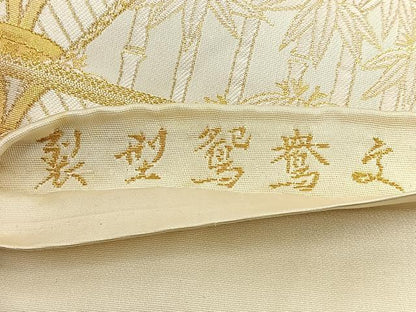 製型鴛鴦文